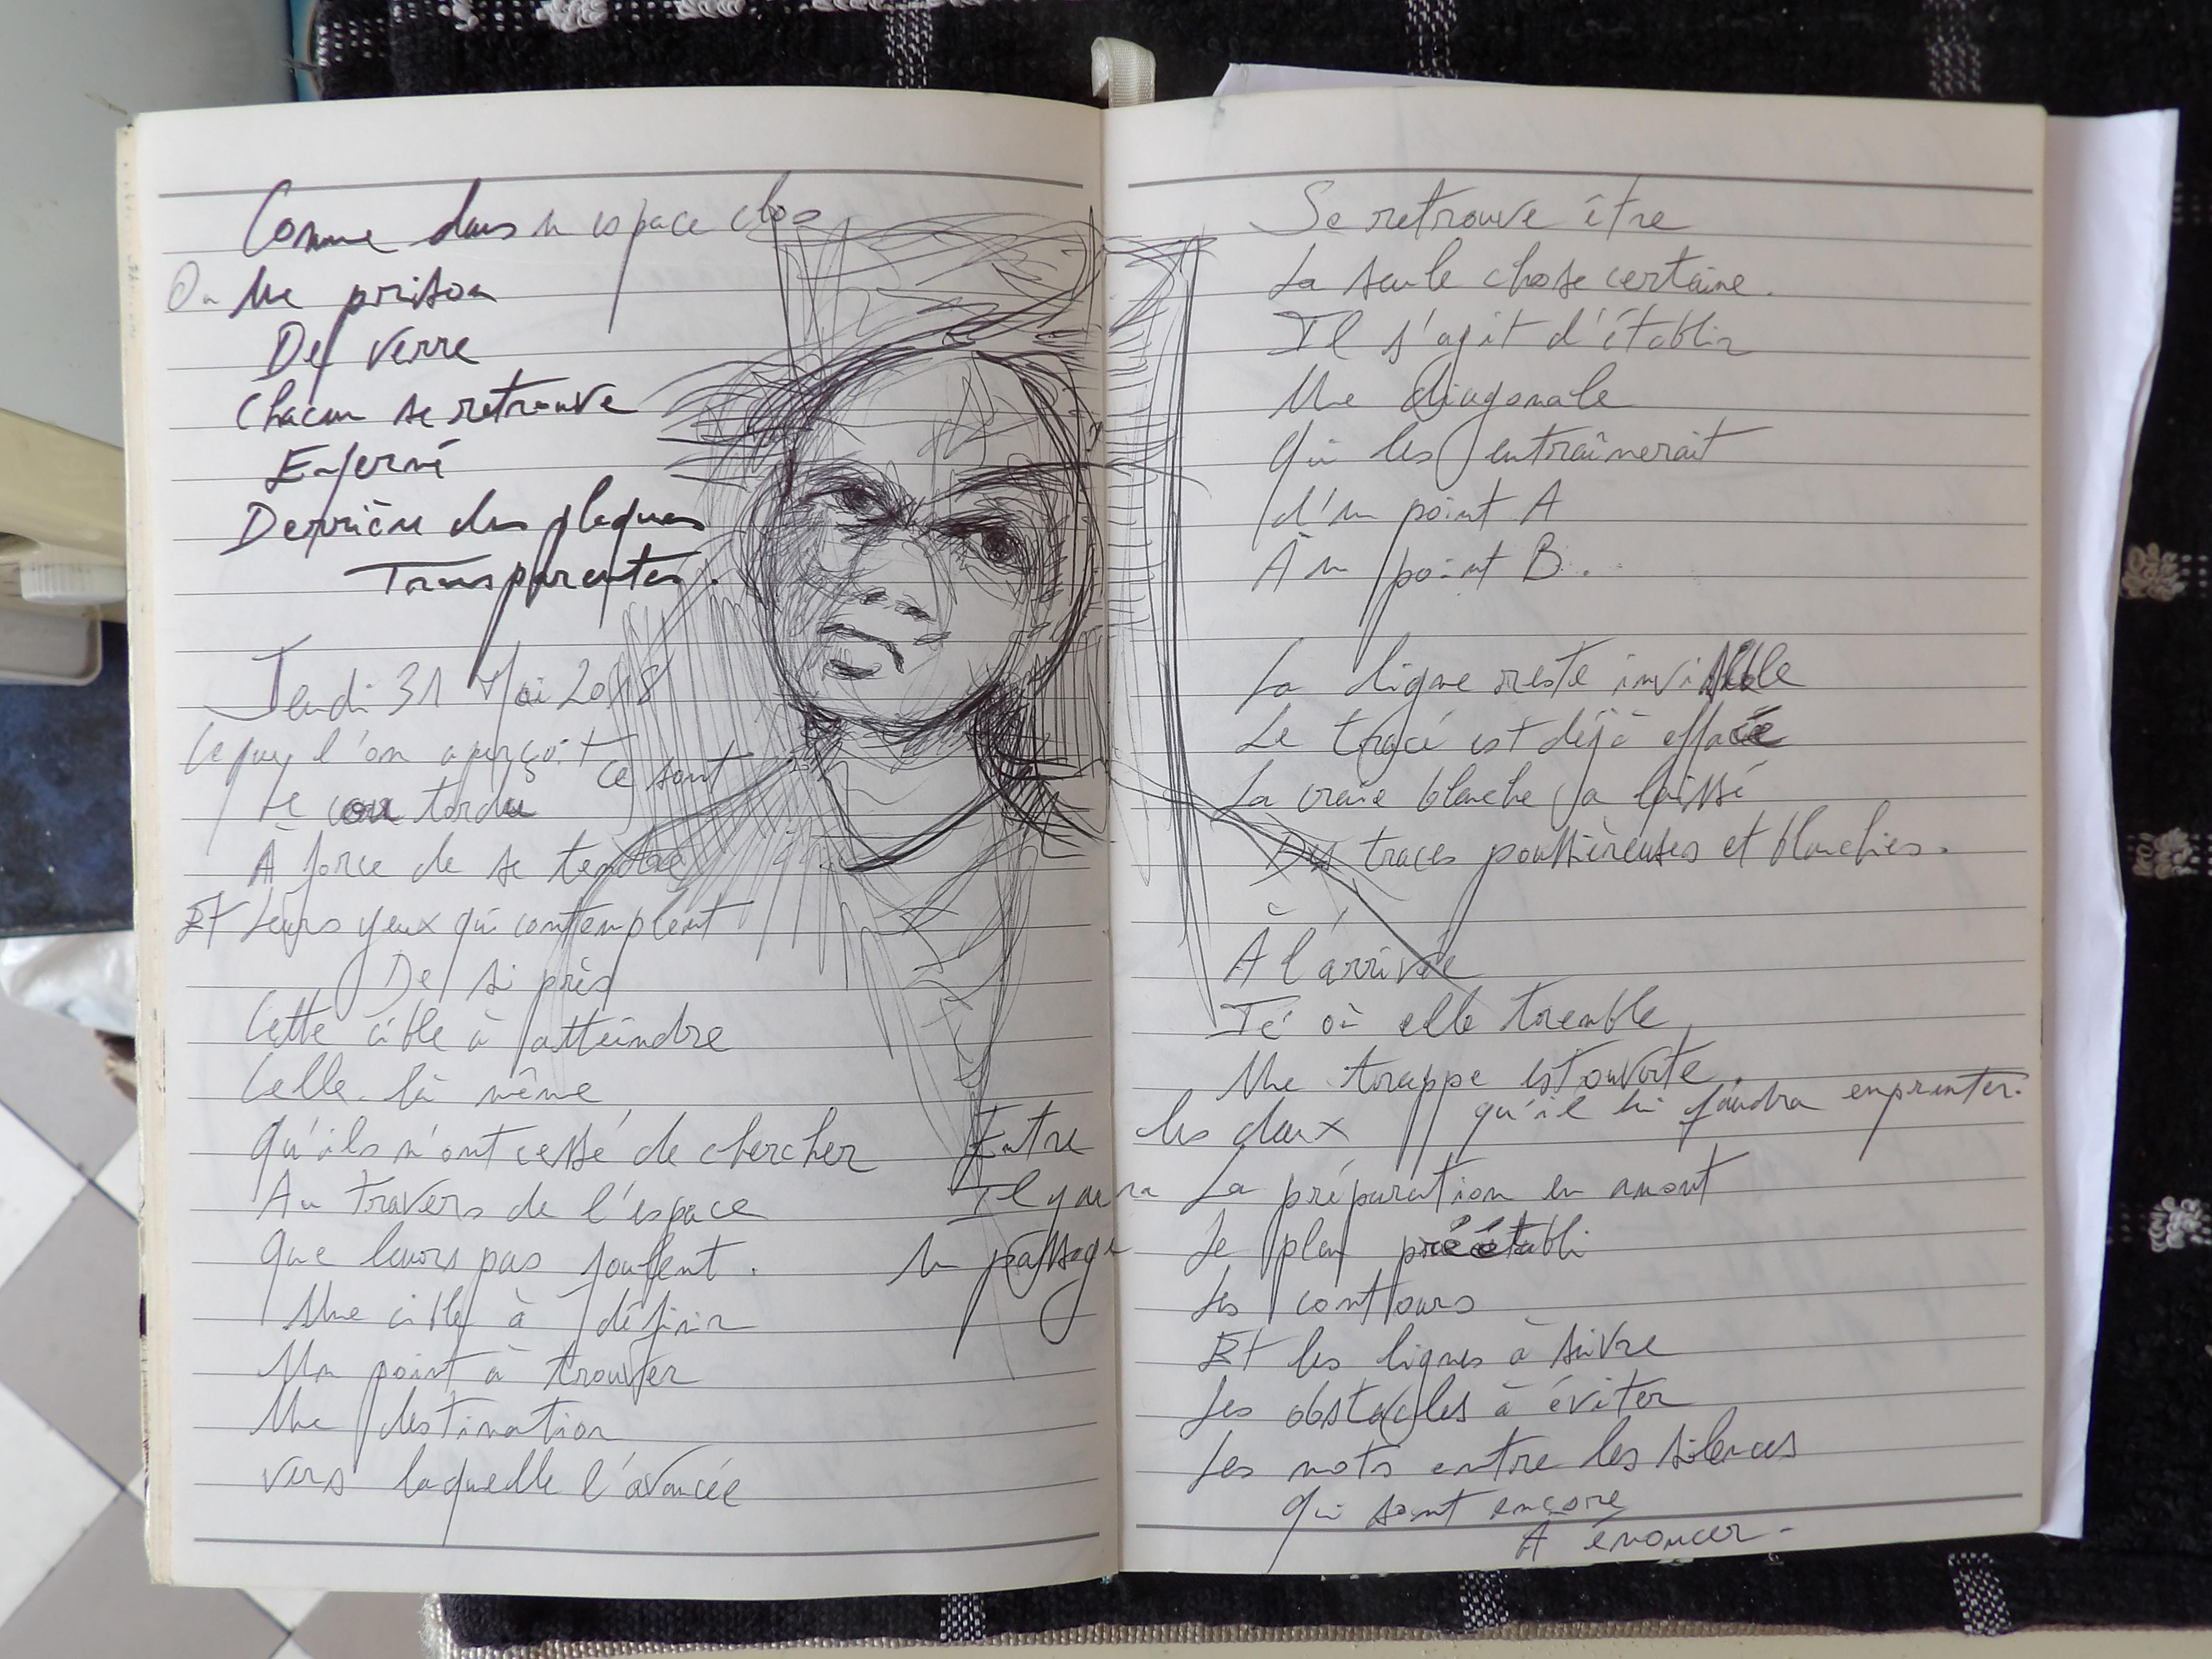 Comme dans un espace clos
Ou Une prison
De verre
Chacun se retrouve
Enfermé
Derrière des plaques
Transparentes.
Jeudi 31 Mai 2018
Ce que l'on aperçoit ce sont
Le cou tordu
A force de se tendre
Et Leurs yeux qui contemplent
De si près
Cette cible à atteindre
Celle-là même
Qu'ils n'ont cessé de chercher
Au travers de l'espace
Que leurs pas foulent.
Une cible à définir
Un point à trouver
Une destination
Vers laquelle l'avancée
Se retrouve être
La seule chose certaine.
Il s'agit d'établir
Une diagonale
Qui les entraînerait
d'un point A
À un point B.
La ligne reste invisible
Le tracé est déjà effacé
La craie blanche a laissé
Des traces poussiéreuses et blanchies.
À l'arrivée
Là où elle tremble,
Une trappe est ouverte.
Entre les deux
Il y aura
Un passage
qu'il lui faudra emprunter.
La préparation en amont
Le plan préétabli
Les contours
Et les lignes à suivre
Les obstacles à éviter
Les mots entre les silences
Qui sont encore
A énoncer.